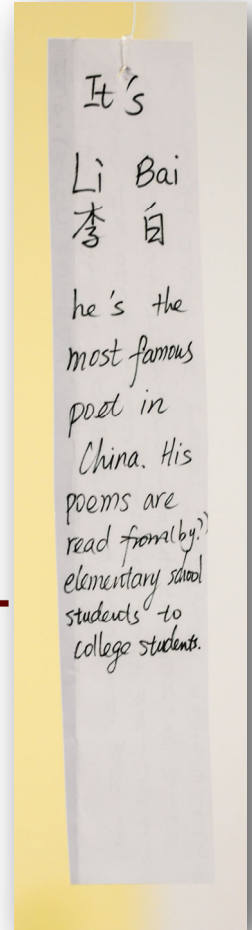 It's
Li Bai
李白
he's the
most famous
poet in
China. His
poems are
read from(by?)
elementary school
students to
college students.